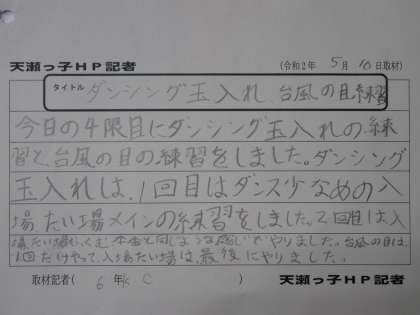 天瀬っ子HP記者
(令和2年 5月 10日取材)
タイトル ダンシング玉入れ、台風の目練習
今日の4限目にダンシング玉入れの練
習と、台風の目の練習をしました。ダンシング
玉入れは、1回目はダンス少なめの入
場、たい場メインの練習をしました。2回目は入
場たい場もふくむ本番と同じような感じでやりました。台風の目は、
1回だけやって、入場たい場は、最後にやりました。
取材記者( 6年 C )
天瀬っ子HP記者